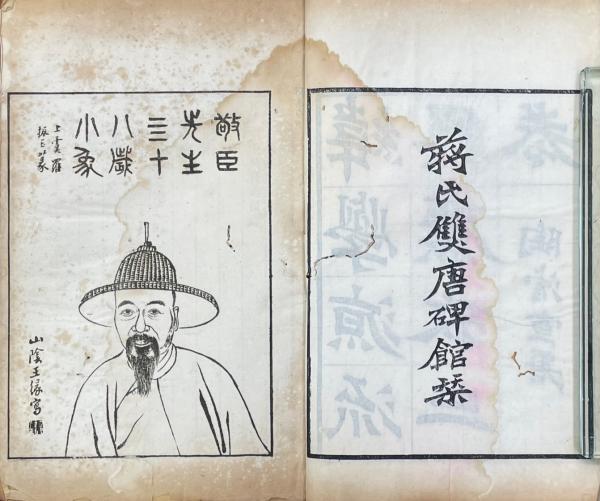 蔣氏雙唐碑館栞
敬臣
先生
三十
八歲
小象
上虞羅
振玉篆
山陰王緣寫